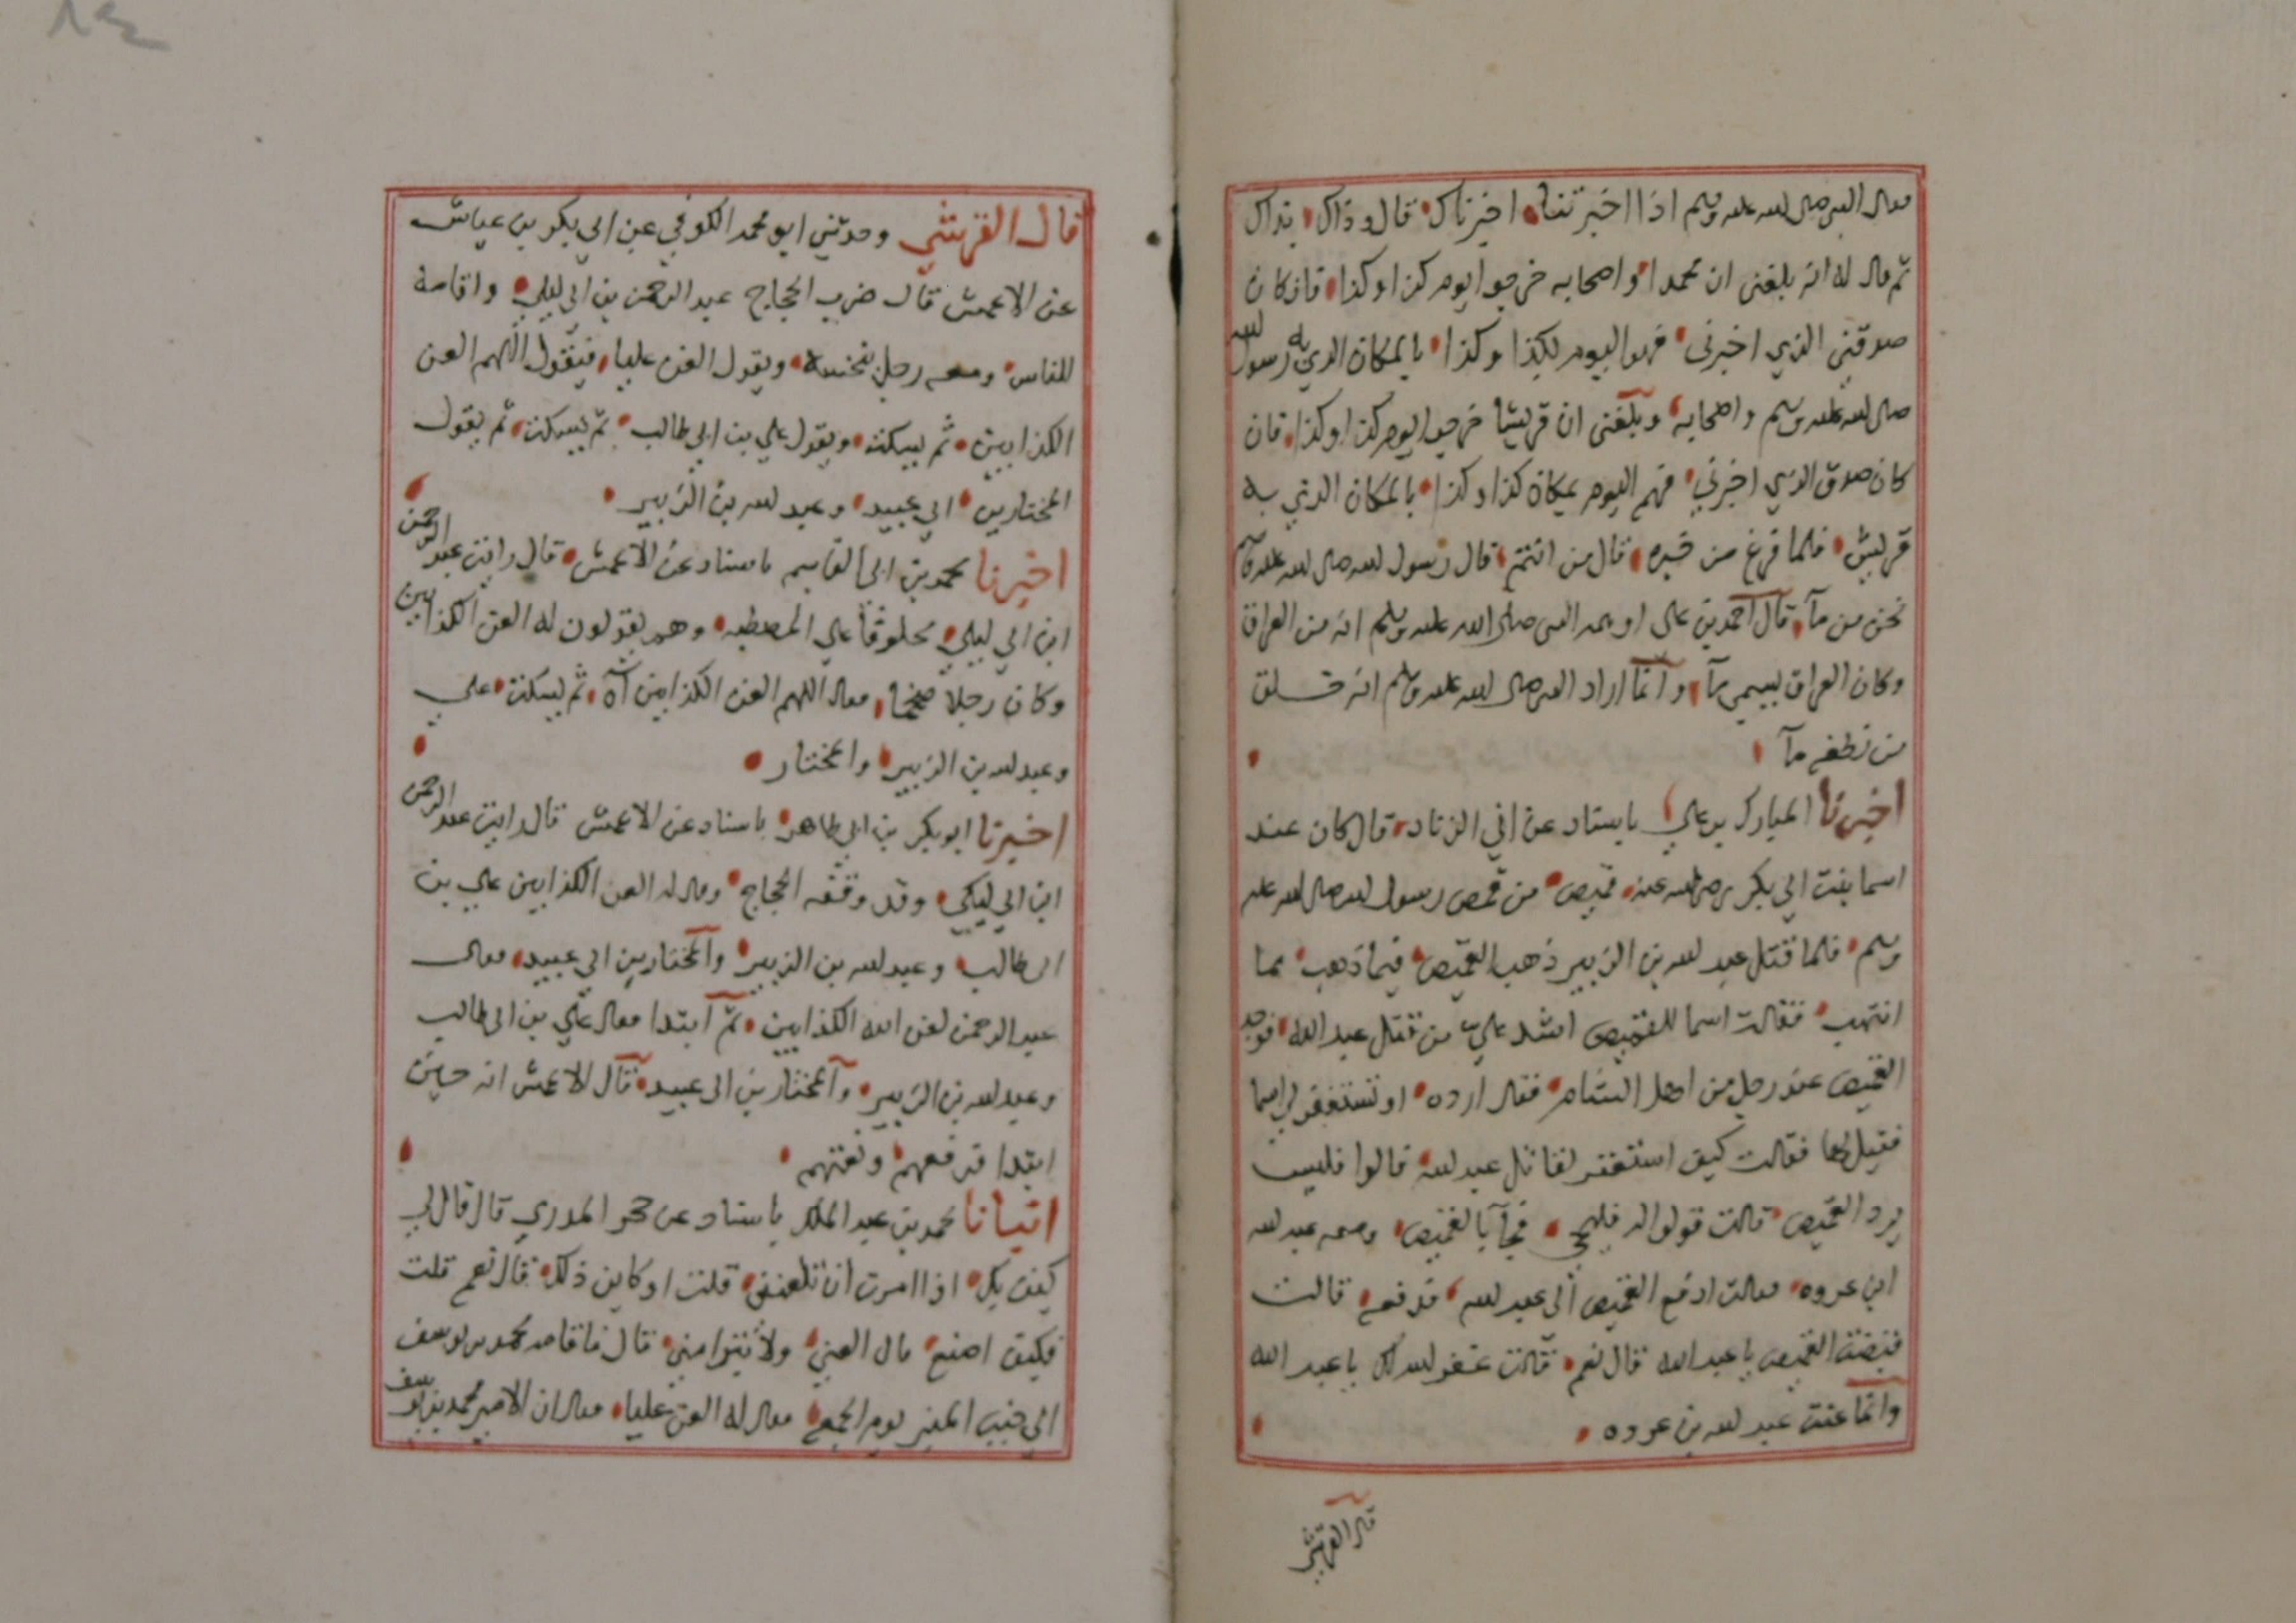 فقال النبي صلى الله عليه وسلم اذا اخبرتنا اخبرناك قال وذاك بذاك
ثم قال له انه بلغني ان محمدا واصحابه خرجوا يوم كذا وكذا فان كان
صدقني الذي اخبرني فهو اليوم بكذا وكذا بالمكان الذي به رسول الله
صلى الله عليه وسلم واصحابه وبلغني ان قريشا خرجوا يوم كذا وكذا فان
كان صدق الذي اخبرني فهم اليوم بمكان كذا وكذا بالمكان الذي به
قريش فلما فرغ من خبره قال من انتم قال رسول الله صلى الله عليه وسلم
نحن من مآ قال احمد بن علي اوهمه النبي صلى الله عليه وسلم انه من العراق
وكان العراق يسمى مآ وانما اراد النبي صلى الله عليه وسلم انه خلق
من نطفه مآ
اخبرنا المبارك بن علي باسناد عن ابي الزناد قال كان عند
اسما بنت ابي بكر رضي الله عنه قميص من قمص رسول الله صلى الله عليه
وسلم فلما قتل عبد الله بن الزبير ذهب القميص فيما ذهب مما
انتهب فقالت اسما للقميص اشد علي من قتل عبد الله فوجد
القميص عند رجل من اهل الشام فقال لا ارده او تستغفر لي اسما
فقيل لها فقالت كيف استغفر لقاتل عبد الله قالوا فليس
يرد القميص قالت قولوا له فليجي فجآ بالقميص ومعه عبد الله
ابن عروه فقالت ادفع القميص الى عبد الله فدفعه قالت
قبضت القميص يا عبد الله قال نعم قالت غفر الله لك يا عبد الله
وانما عنت عبد الله بن عروه
قال القرشي
قال القرشي وحدثني ابو محمد الكوفي عن ابي بكر بن عياش
عن الاعمش قال ضرب الحجاج عبد الرحمن بن ابي ليلي واقامه
للناس ومعه رجل ينخسه ويقول العن عليا فيقول اللهم العن
الكذابين ثم يسكت ويقول علي بن ابي طالب ثم يسكت ثم يقول
المختار بن ابي عبيد وعبد الله بن الزبير
اخبرنا محمد بن ابي القاسم باسناد عن الاعمش قال رايت عبد الرحمن
ابن ابي ليلي محلوقا علي المصطبه وهم يقولون له العن الكذابين
وكان رجلا ضخما فقال اللهم العن الكذابين آه ثم يسكت علي
وعبد الله بن الزبير والمختار
اخبرنا ابو بكر بن ابي طاهر باسناد عن الاعمش قال رايت عبد الرحمن
ابن ابي ليلي وقد وقفه الحجاج وقال له العن الكذابين علي بن
ابي طالب وعبد الله بن الزبير والمختار بن ابي عبيد فقال
عبد الرحمن لعن الله الكذابين ثم ابتدا فقال علي بن ابي طالب
وعبد الله بن الزبير والمختار بن ابي عبيد قال الاعمش انه حين
ابتدا فرفعهم ولعنهم
انبانا محمد بن عبد الملك باسناد عن حجر المدري قال قال لي
كيف بك اذا امرت ان تلعنني قلت او كاين ذلك قال نعم قلت
فكيف اصنع قال العني ولا تتبرا مني قال فاقامه محمد بن يوسف
الي جنب المنبر يوم الجمعه فقال له العن عليا فقال ان الامير محمد بن يوسف